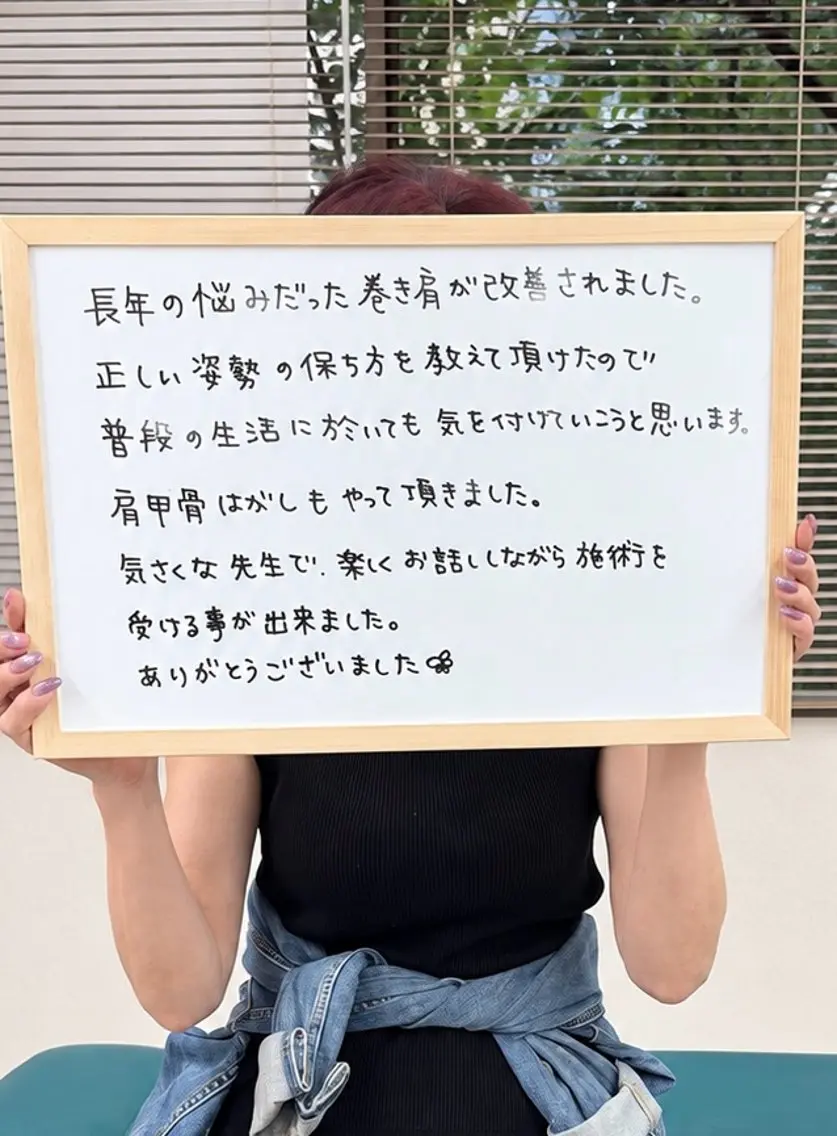 長年の悩みだった巻き肩が改善されました。
正しい姿勢の保ち方を教えて頂けたので
普段の生活に於いても気を付けていこうと思います。
肩甲骨はがしもやって頂きました。
気さくな先生で、楽しくお話ししながら施術を
受ける事が出来ました。
ありがとうございました